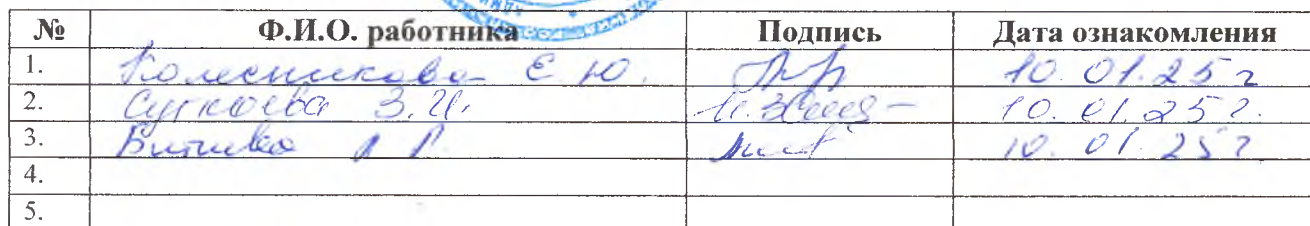 № Ф.И.О. работника Подпись Дата ознакомления
1. Колесникова Е. Ю. 10.01.25г
2. З.И. 10.01.25г.
3. 10.01.25г
4.
5.